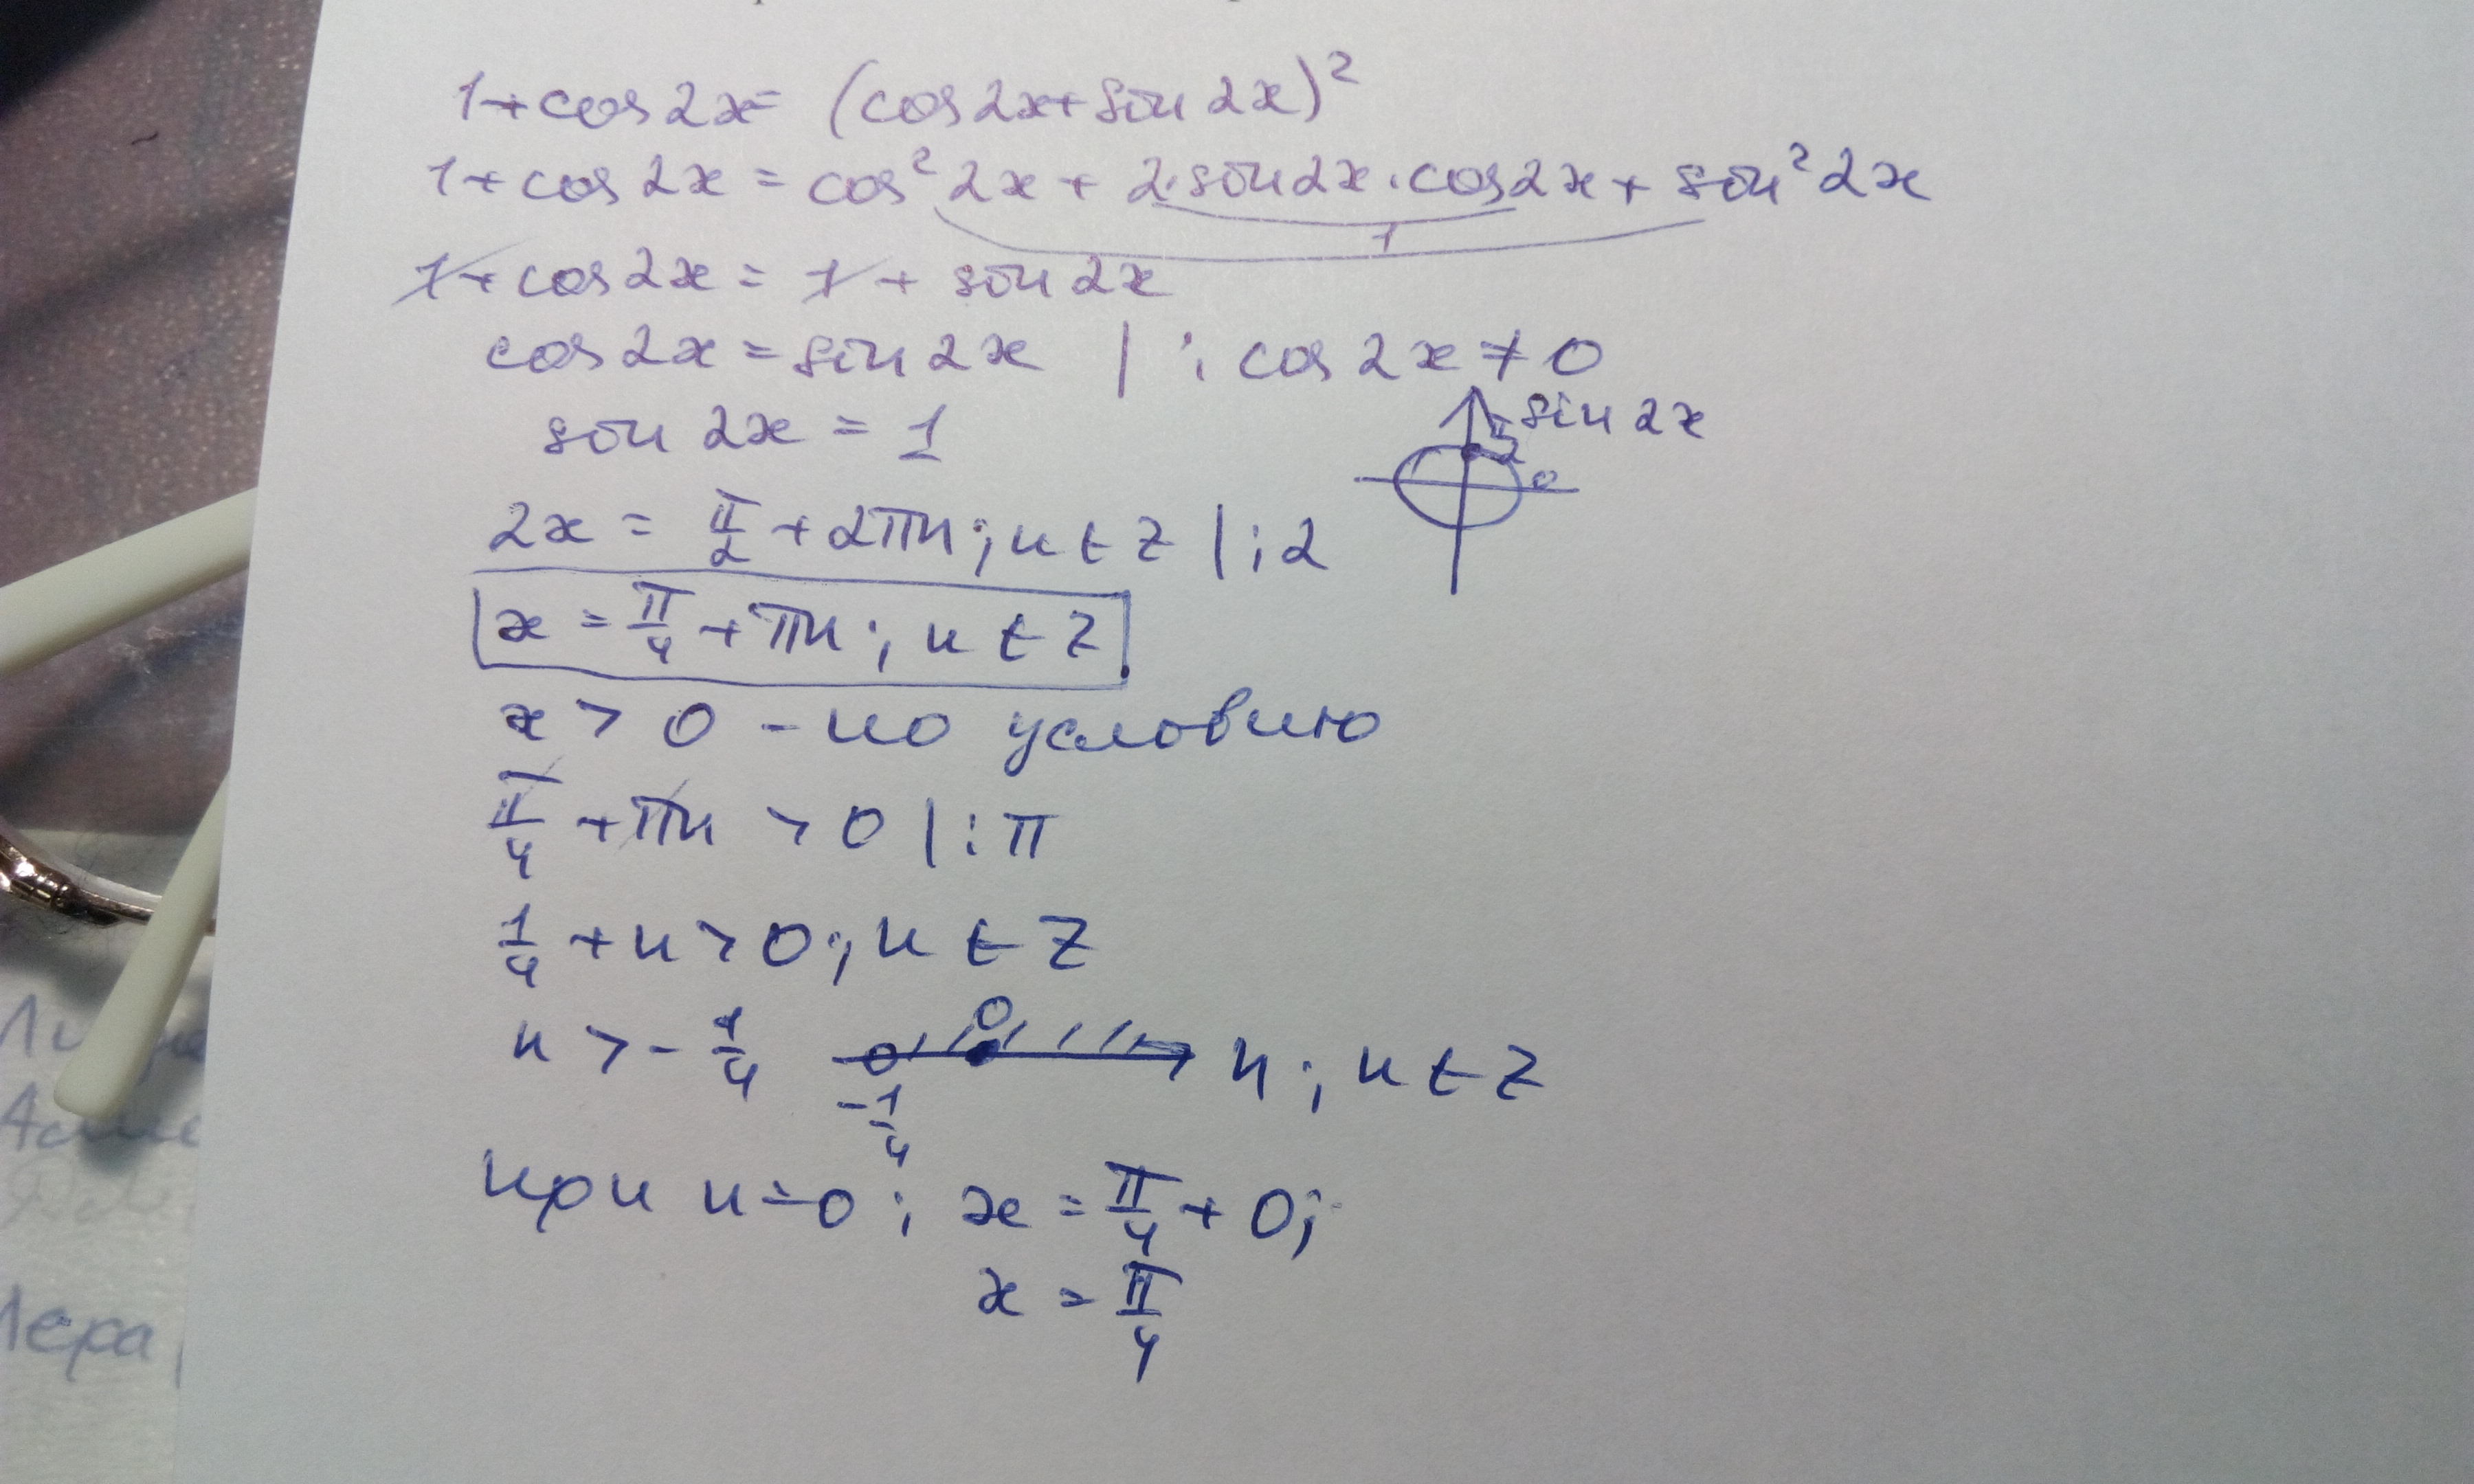 1+cos2x= (cos2x+sin2x)²
1+cos2x = cos²2x + 2·sin2x·cos2x + sin²2x
1
1+cos2x = 1 + sin2x
cos2x = sin2x | : cos2x ≠ 0
sin2x = 1
sin2x
π/2
0
2x = π/2 + 2πn; n ∈ Z | :2
x = π/4 + πn; n ∈ Z
x > 0 - по условию
π/4 + πn > 0 | : π
1/4 + n > 0; n ∈ Z
n > -1/4
0
-1/4
n; n ∈ Z
при n=0; x = π/4 + 0;
x = π/4
Лера,